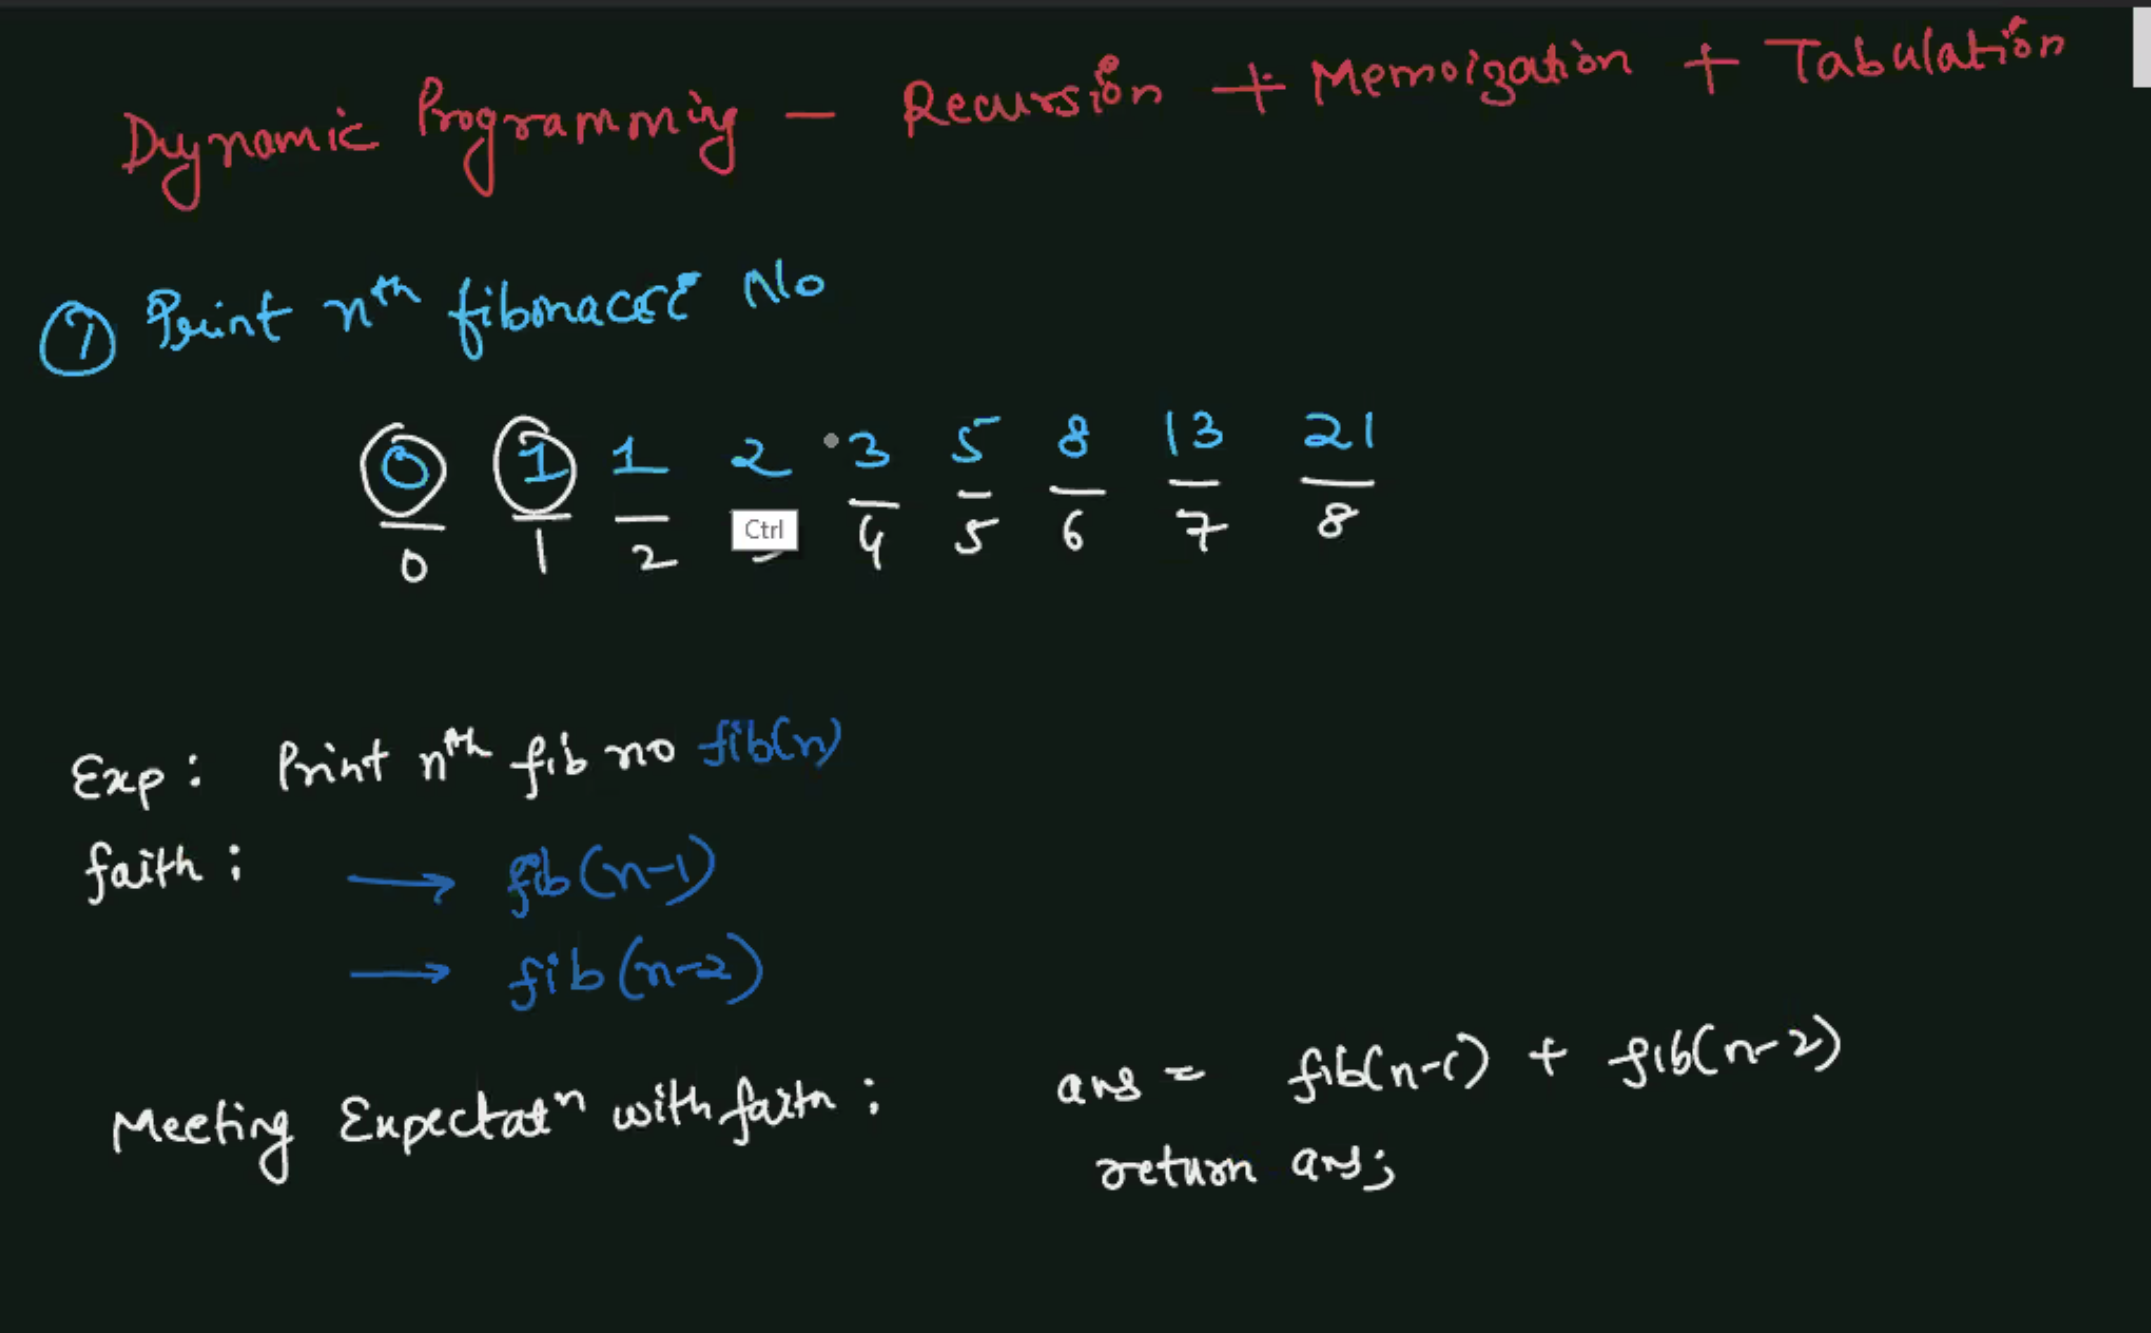 Dynamic Programming - Recursion + Memoization + Tabulation
① Print nth fibonacci No
0 1 1 2 3 5 8 13 21
0 1 2 Ctrl 4 5 6 7 8
Exp: Print nth fib no fib(n)
faith: → fib(n-1)
→ fib(n-2)
Meeting Expectatn with faith: ans = fib(n-1) + fib(n-2)
return ans;